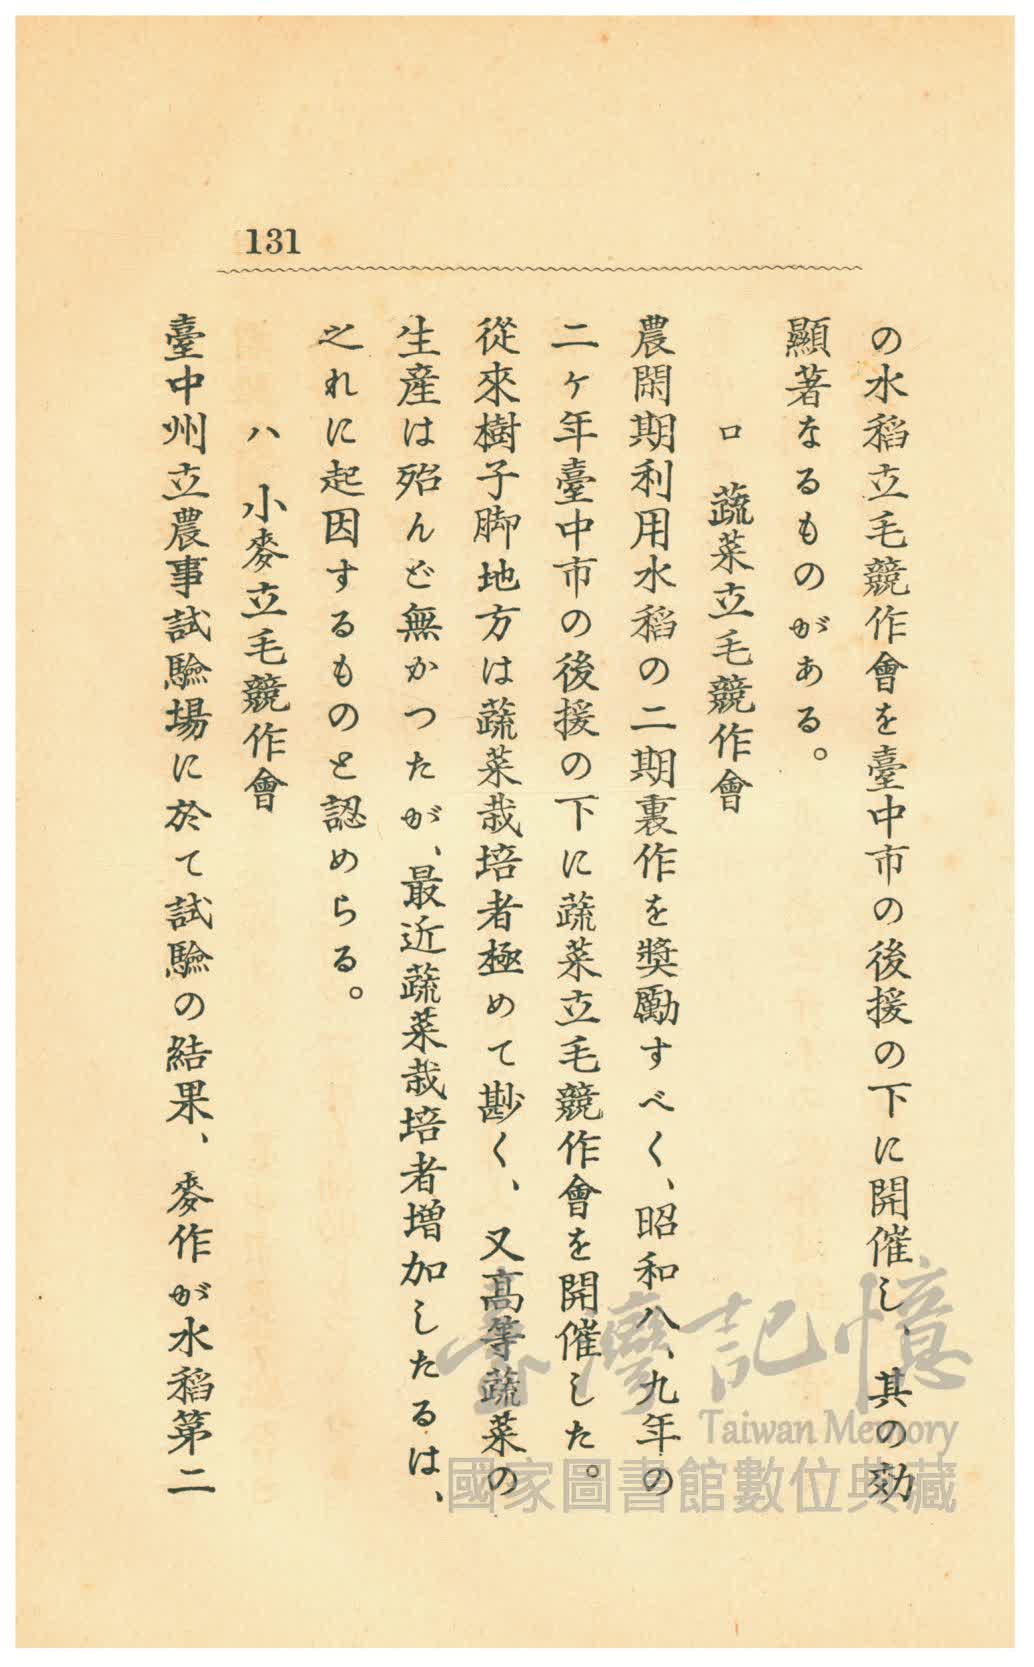 131
の水稻立毛競作會を臺中市の後援の下に開催し、其の効
顯著なるものがある。
ロ 蔬菜立毛競作會
農閑期利用水稻の二期裏作を獎勵すべく、昭和八、九年の
二ヶ年臺中市の後援の下に蔬菜立毛競作會を開催した。
從來樹子脚地方は蔬菜栽培者極めて尠く、又高等蔬菜の
生産は殆んど無かつたが、最近蔬菜栽培者增加したるは、
之れに起因するものと認めらる。
ハ 小麥立毛競作會
臺中州立農事試驗場に於て試驗の結果、麥作が水稻第二
臺灣記憶
Taiwan Memory
國家圖書館數位典藏